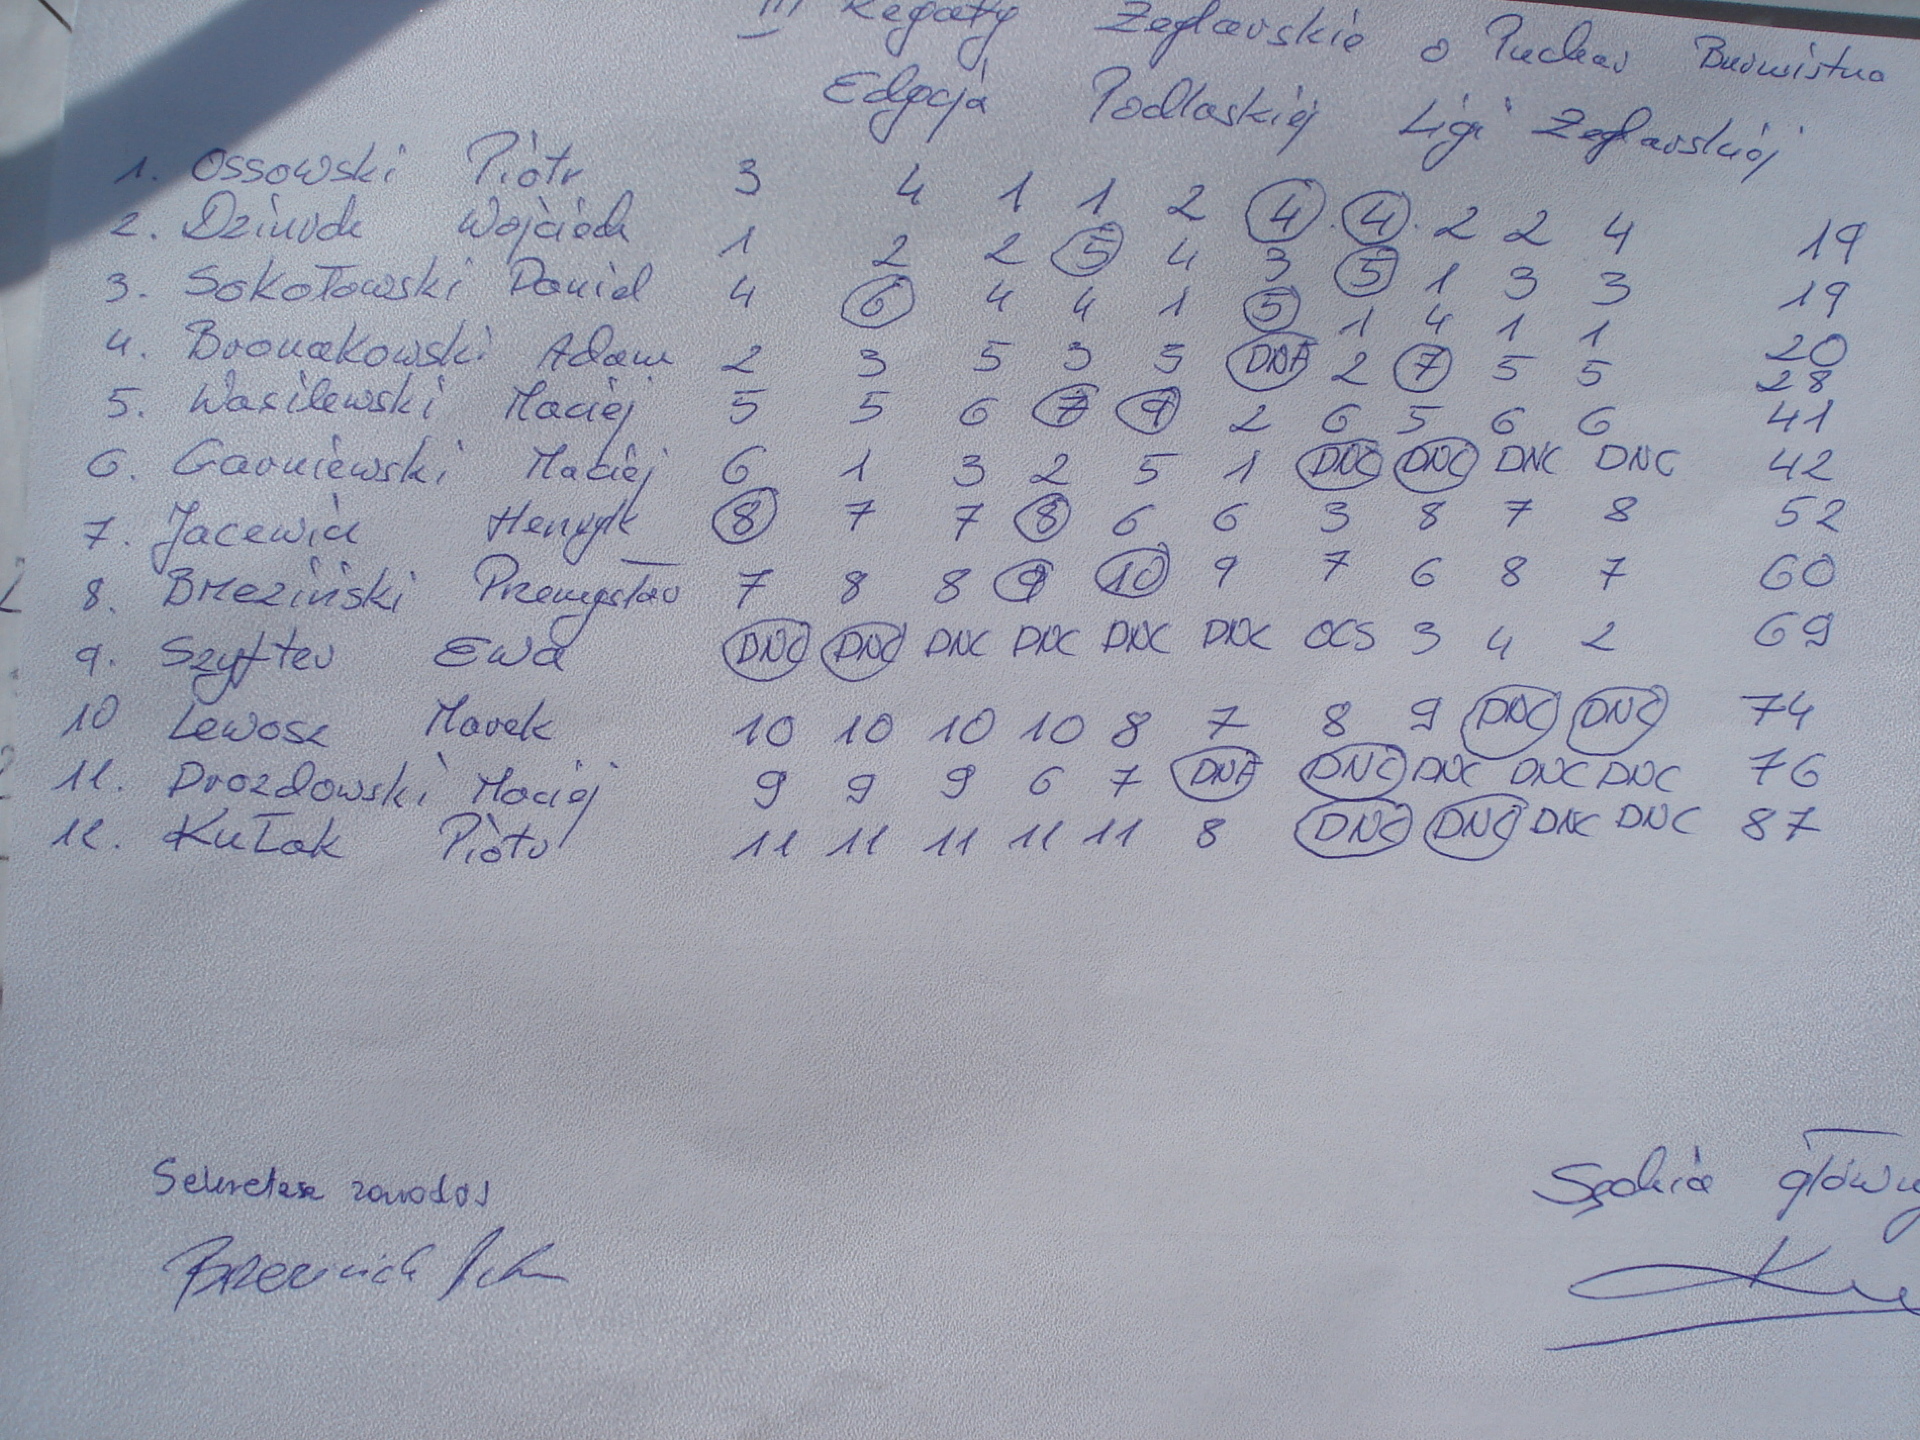 III Regaty Żeglarskie o Puchar Burmistrza
Edycja Podlaskiej Ligi Żeglarskiej
1. Ossowski Piotr 3 4 1 1 2 4 4 2 2 4 19
2. Dziurda Wojciech 1 2 2 5 4 3 5 1 3 3 19
3. Sokołowski Daniel 4 6 4 4 1 5 1 4 1 1 20
4. Bronakowski Adam 2 3 5 3 3 DNF 2 7 5 5 28
5. Wasilewski Maciej 5 5 6 7 9 2 6 5 6 6 41
6. Garniewski Maciej 6 1 3 2 5 1 DNC DNC DNC DNC 42
7. Jacewicz Henryk 8 7 7 8 6 6 3 8 7 8 52
8. Brzeziński Przemysław 7 8 8 9 10 9 7 6 8 7 60
9. Szyfter Ewa DNC DNC DNC DNC DNC DNC OCS 3 4 2 69
10 Lewosz Marek 10 10 10 10 8 7 8 9 DNC DNC 74
11. Drozdowski Maciej 9 9 9 6 7 DNF DNC DNC DNC DNC 76
12. Kułak Piotr 11 11 11 11 11 8 DNC DNC DNC DNC 87
Sekretarz zawodów
Sędzia główny